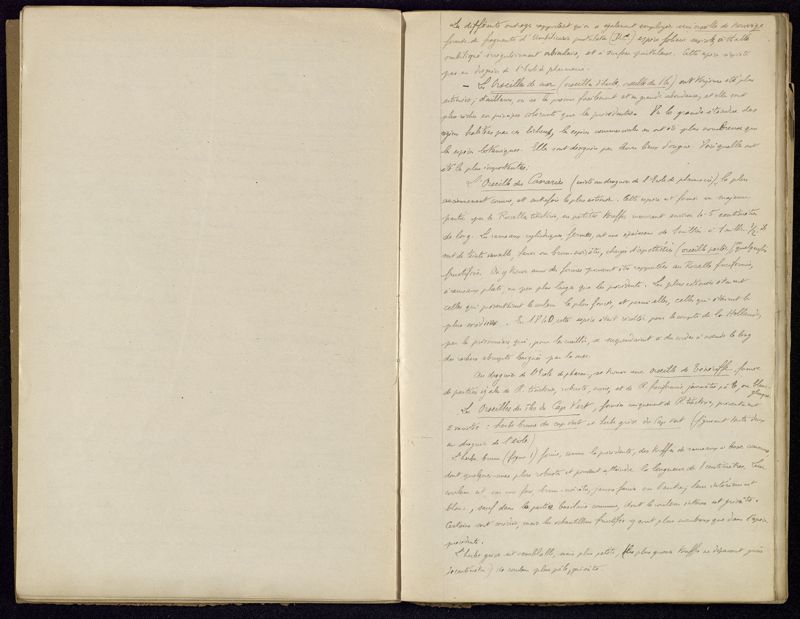 Les différents ouvrages rapportent qu'on a également employé une orseille de Norvège
formée de fragments d'Umbilicaria pustulata espèce foliacée à thalle
ombiliqué irrégulièrement orbiculaire, et à surface pustuleuse. Cette espèce n'existe
pas au droguier de l'Ecole de pharmacie.
— Les Orseilles de mer (orseille d'herbe, orseille des îles) ont toujours été plus
estimées; d'ailleurs, on se les procure facilement et en grande abondance, et elles sont
plus riches en principes colorants que les précédentes. Vu la grande étendue des
régions habitées par ces lichens, les espèces commerciales en ont été plus nombreuses que
les espèces botaniques. Elles sont désignées par leurs lieux d'origine. Voici quelles ont
été les plus importantes:
L'Orseille des Canaries (existe au droguier de l'Ecole de pharmacie), la plus
anciennement connue, et autrefois la plus estimée. Cette espèce est formée en majeure
partie par le Rocella tinctoria, en petites touffes mesurant environ 4-5 centimètres
de long. Les rameaux cylindriques, fermes, ont une épaisseur de 1 millim. à 1 millim. 1/2; ils
sont de teinte cannelle, fauve ou brun-noirâtre, chargés d'apothécies quelquefois
fructifiés. On y trouve aussi des formes pouvant être rapportées au Rocella fuciformis,
à rameaux plats un peu plus larges que les précédents. Les plus estimées étaient
celles qui présentaient la couleur la plus foncée, et parmi elles, celles qui étaient les
plus sorédiées. En 1840, cette espèce était récoltée pour le compte de la Hollande,
par des prisonniers qui, pour la cueillir, se suspendaient à des cordes à nœuds le long
des rochers abrupts baignés par la mer.
Au droguier de l'Ecole de pharm., se trouve une orseille de Ténériffe, formée
de parties égales de R. tinctoria, robuste, noire, et de R. fuciformis, jaunâtre pâle, ou blanc-
glauque.
Les Orseilles des îles du Cap Vert, formées uniquement de R. tinctoria, présentaient
2 variétés: herbe brune du cap vert et herbe grise du Cap vert (figurant toutes deux
au droguier de l'école)
L'herbe brune (figure 1) forme, comme la précédente, des touffes de rameaux à base commune
dont quelques-unes plus robustes et pouvant atteindre la longueur de centimètres. Leur
couleur est ou une fois brun-noirâtre, jaune fauve ou l'autre; leur intérieur est
blanc, sauf dans la partie basilaire commune, dont la couleur interne est grisâtre.
Certains sont sorédiés, mais les échantillons fructifiés y sont plus nombreux que dans l'espèce
précédente.
L'herbe grise est semblable, mais plus petite, (les plus grosses touffes ne dépassent guère
centimètres) de couleur plus pâle, grisâtre.